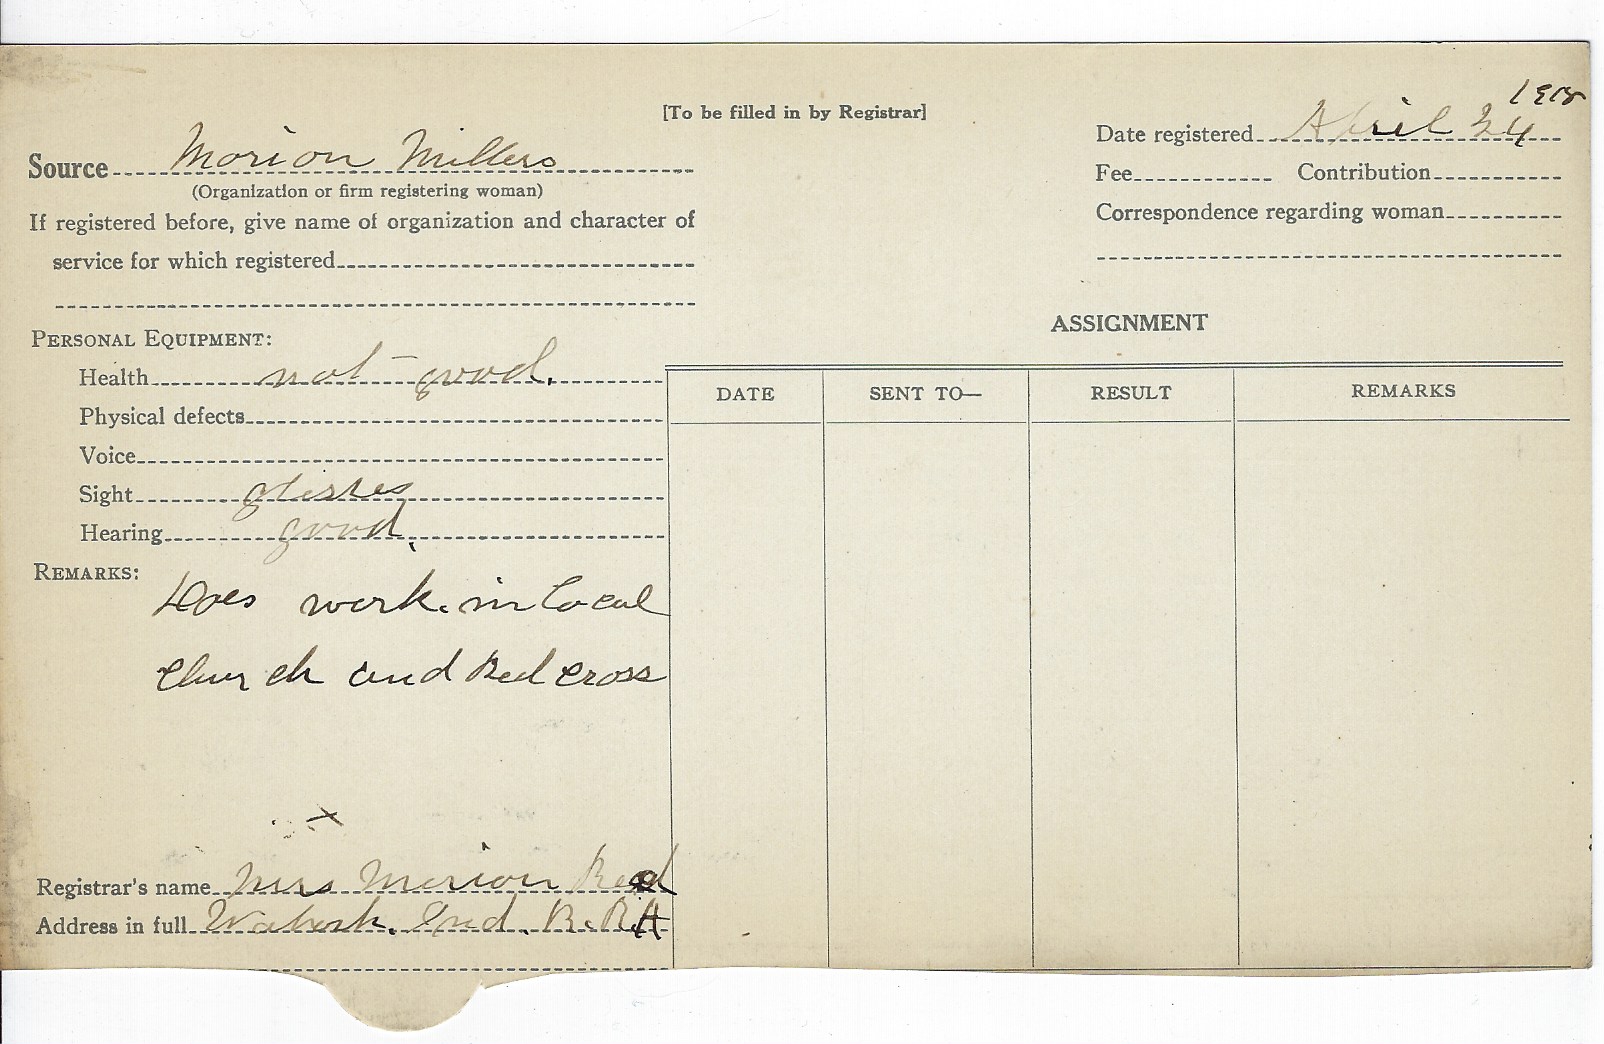 [To be filled in by Registrar]
1918
Date registered April 24
Source Morion Millers
(Organization or firm registering woman)
Fee Contribution
If registered before, give name of organization and character of
Correspondence regarding woman
service for which registered
ASSIGNMENT
PERSONAL EQUIPMENT:
Health not good.
DATE SENT TO— RESULT REMARKS
Physical defects
Voice
Sight glasses
Hearing good.
REMARKS:
Does work in Local
Church and Red Cross
x
Registrar's name Mrs Merion Reed
Address in full Wabash. Ind. R.R.